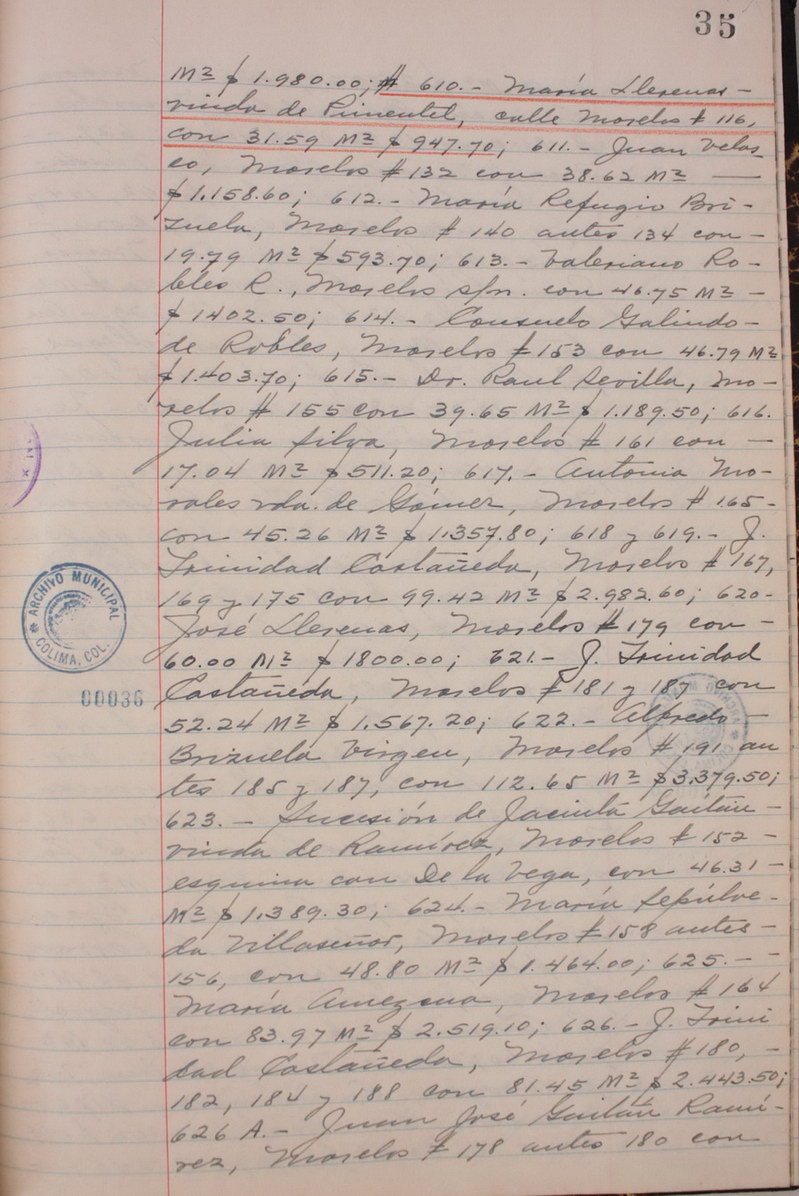 35
M² $ 1.980.00; # 610.- María Llerenas-
viuda de Pimentel, calle Morelos # 116,
con 31.59 M² $ 947.70; 611.- Juan Velas
co, Morelos # 132 con 38.62 M² —
$ 1.158.60; 612.- María Refugio Bri-
zuela, Morelos # 140 antes 134 con-
19.79 M² $ 593.70; 613.- Valeriano Ro-
bles R., Morelos s/n. con 46.75 M² -
$ 1402.50; 614.- Consuelo Galindo-
de Robles, Morelos # 153 con 46.79 M²
$ 1.403.70; 615.- Dr. Raul Sevilla, Mo-
relos # 155 con 39.65 M² $ 1.189.50; 616.
Julia Silva, Morelos # 161 con -
17.04 M² $ 511.20; 617.- Antonia Mo-
rales vda. de Gómez, Morelos # 165-
con 45.26 M² $ 1.357.80; 618 y 619.- J.
Trinidad Castañeda, Morelos # 167,
169 y 175 con 99.42 M² $ 2.982.60; 620-
José Llerenas, Morelos # 179 con -
60.00 M² $ 1800.00; 621.- J. Trinidad
Castañeda, Morelos # 181 y 187 con
52.24 M² $ 1.567.20; 622.- Alfredo -
Brizuela Virgen, Morelos # 191 an
tes 185 y 187, con 112.65 M² $ 3.379.50;
623.- Sucesión de Jacinta Gaitán -
viuda de Ramírez, Morelos # 152 -
esquina con De la Vega, con 46.31 -
M² $ 1.389.30; 624.- María Sepúlve-
da Villaseñor, Morelos # 158 antes-
156, con 48.80 M² $ 1.464.00; 625.- -
María Amezcua, Morelos # 164
con 83.97 M² $ 2.519.10; 626.- J. Trini
dad Castañeda, Morelos # 180, -
182, 184 y 188 con 81.45 M² $ 2.443.50;
626 A.- Juan José Gaitán Ramí-
rez, Morelos # 178 antes 180 con
ARCHIVO MUNICIPAL
COLIMA, COL.
00036